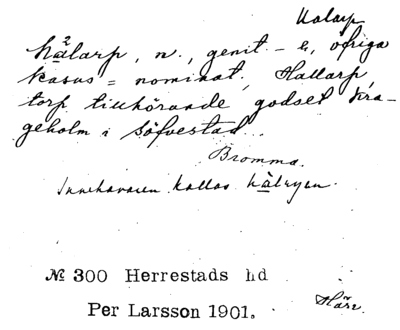 Halarp
hälarp, n., genit – s, öfriga
kasus = nominat. Hallarp
torp tillhörande godset Kra-
geholm i Söfvestad.
Bromma.
Innehavaren kallas hälryen.
№ 300 Herrestads hd
Per Larsson 1901.